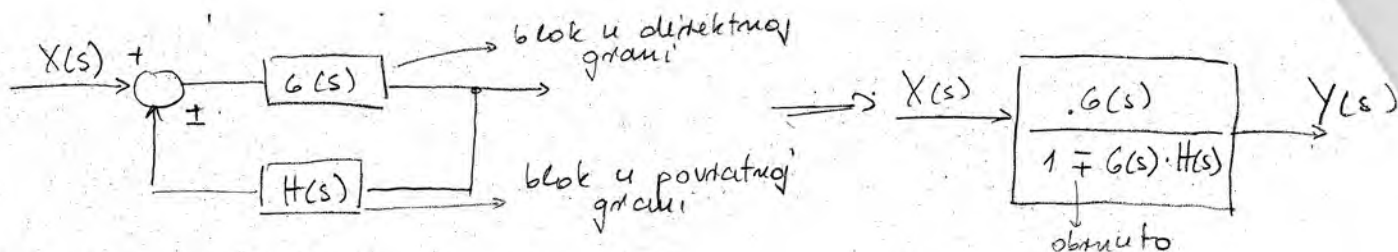 X(s)
+
±
G(s)
blok u direktnoj
grani
H(s)
blok u povratnoj
grani
X(s)
G(s)
1 ∓ G(s)·H(s)
obrnuto
Y(s)